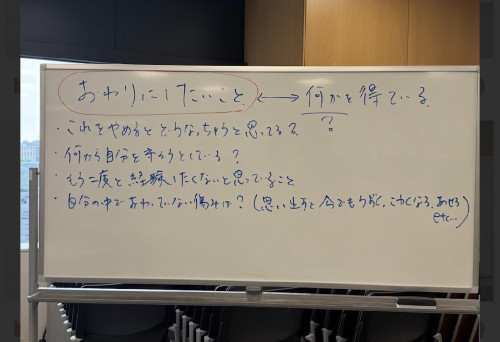 おわりにしたいこと ↔ 何かを得ている
?
・これをやめるとどうなっちゃうと思ってる?
・何から自分を守ろうとしている?
・もう二度と経験したくないと思っていること
・自分の中でおわっていない傷みは? (思い出すと今でもうずく、こわくなる、あせる
etc…)